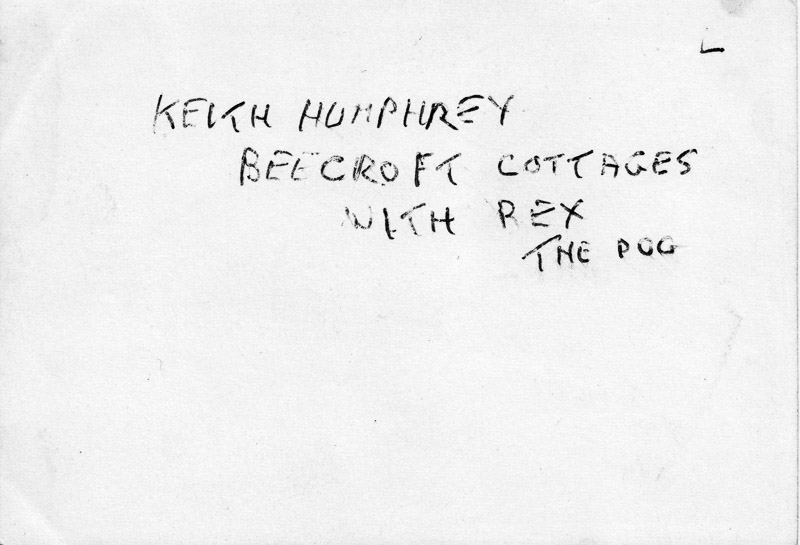 KEITH HUMPHREY
BEECROFT COTTAGES
WITH REX
THE DOG